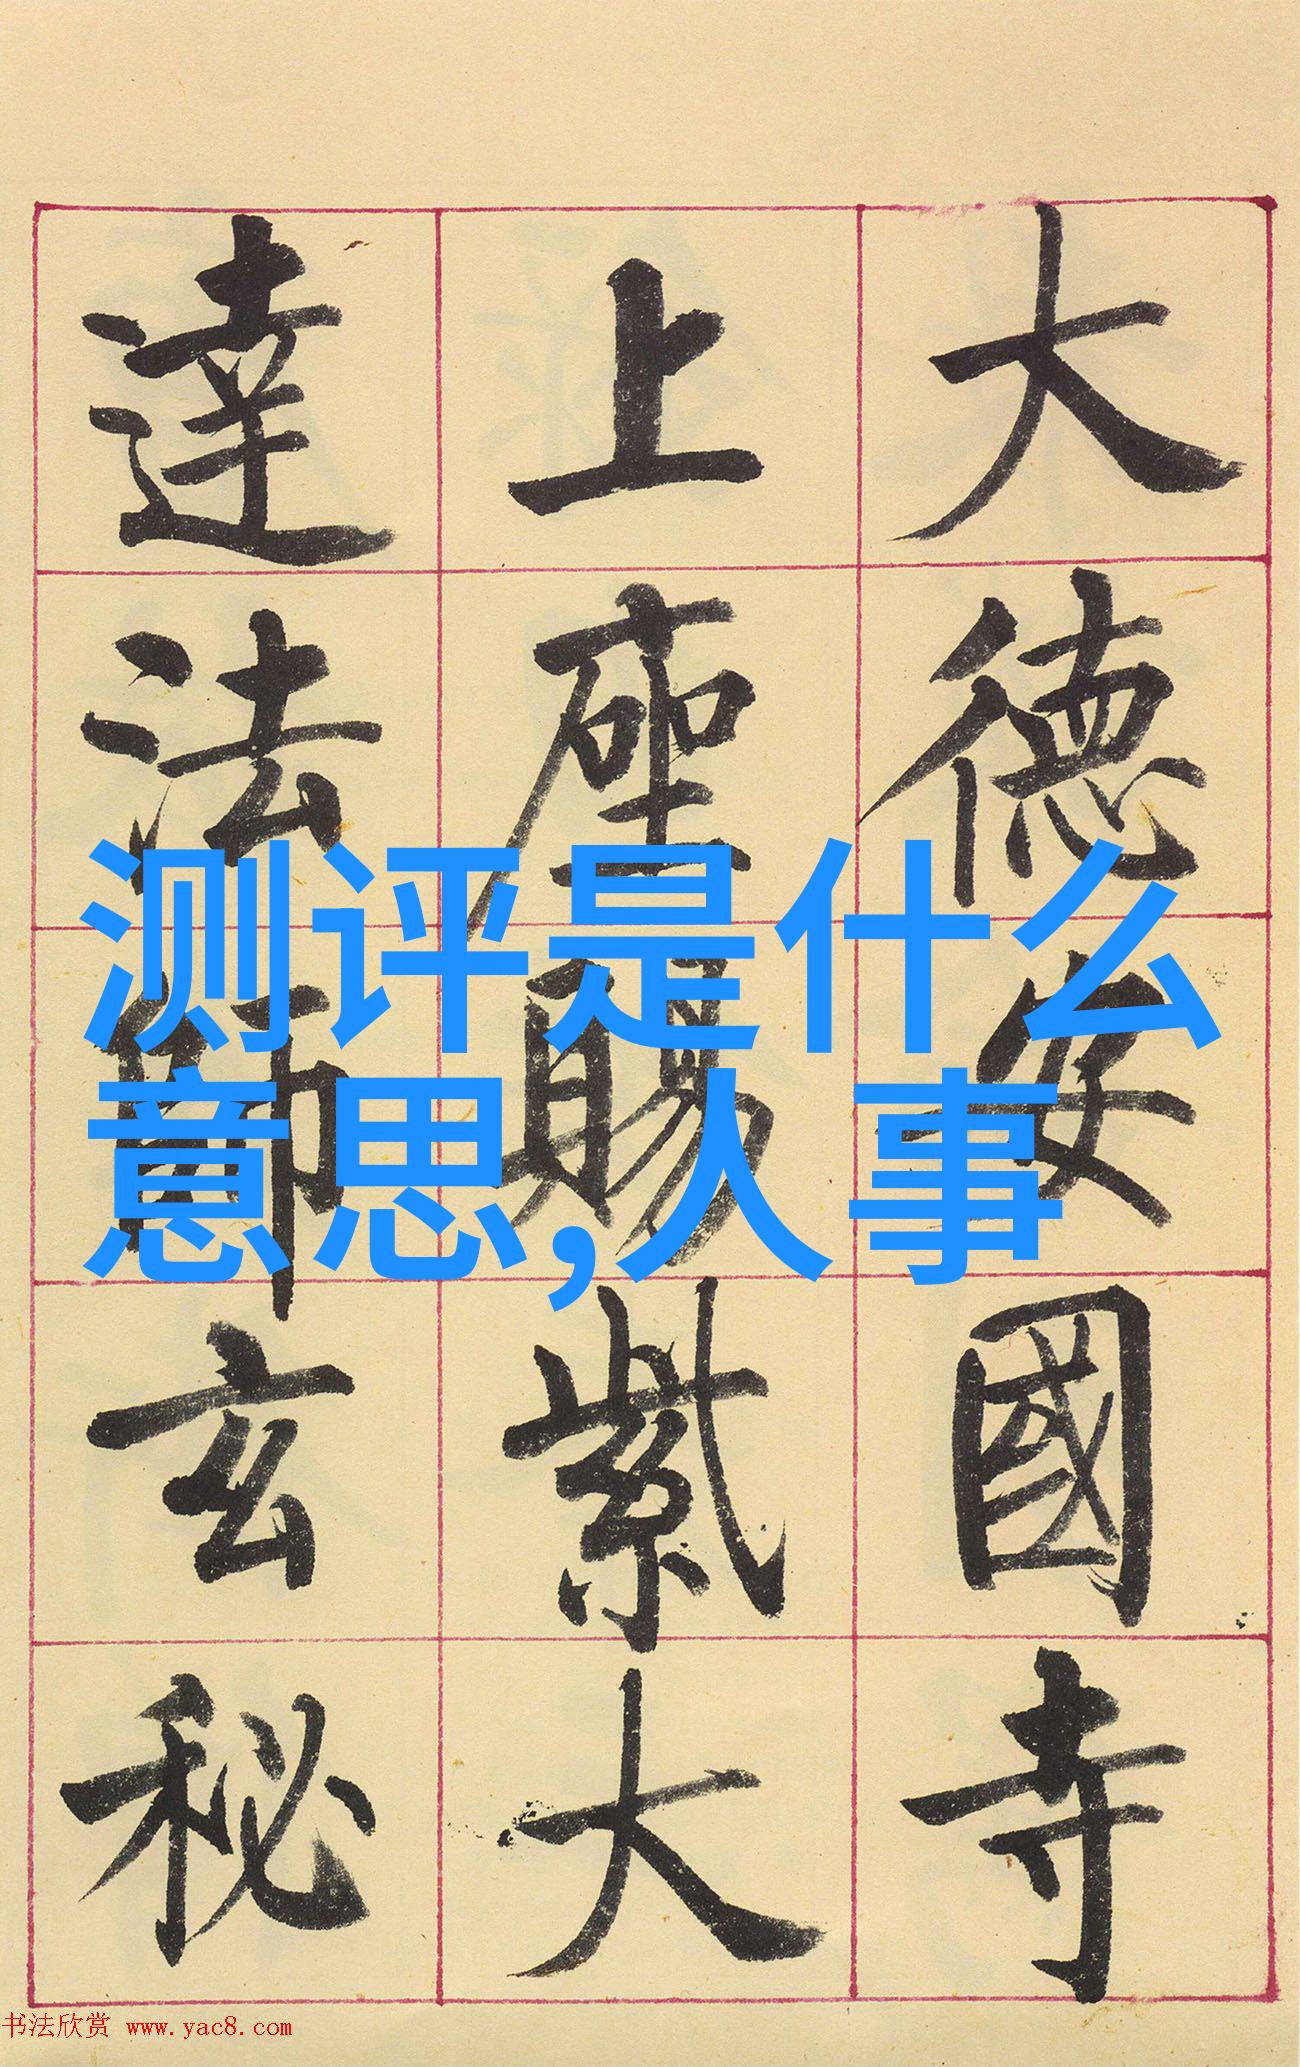 大德安國寺
上座賜紫大
達法師玄秘
测评是什么
意思,人事
书法欣赏 www.yac8.com